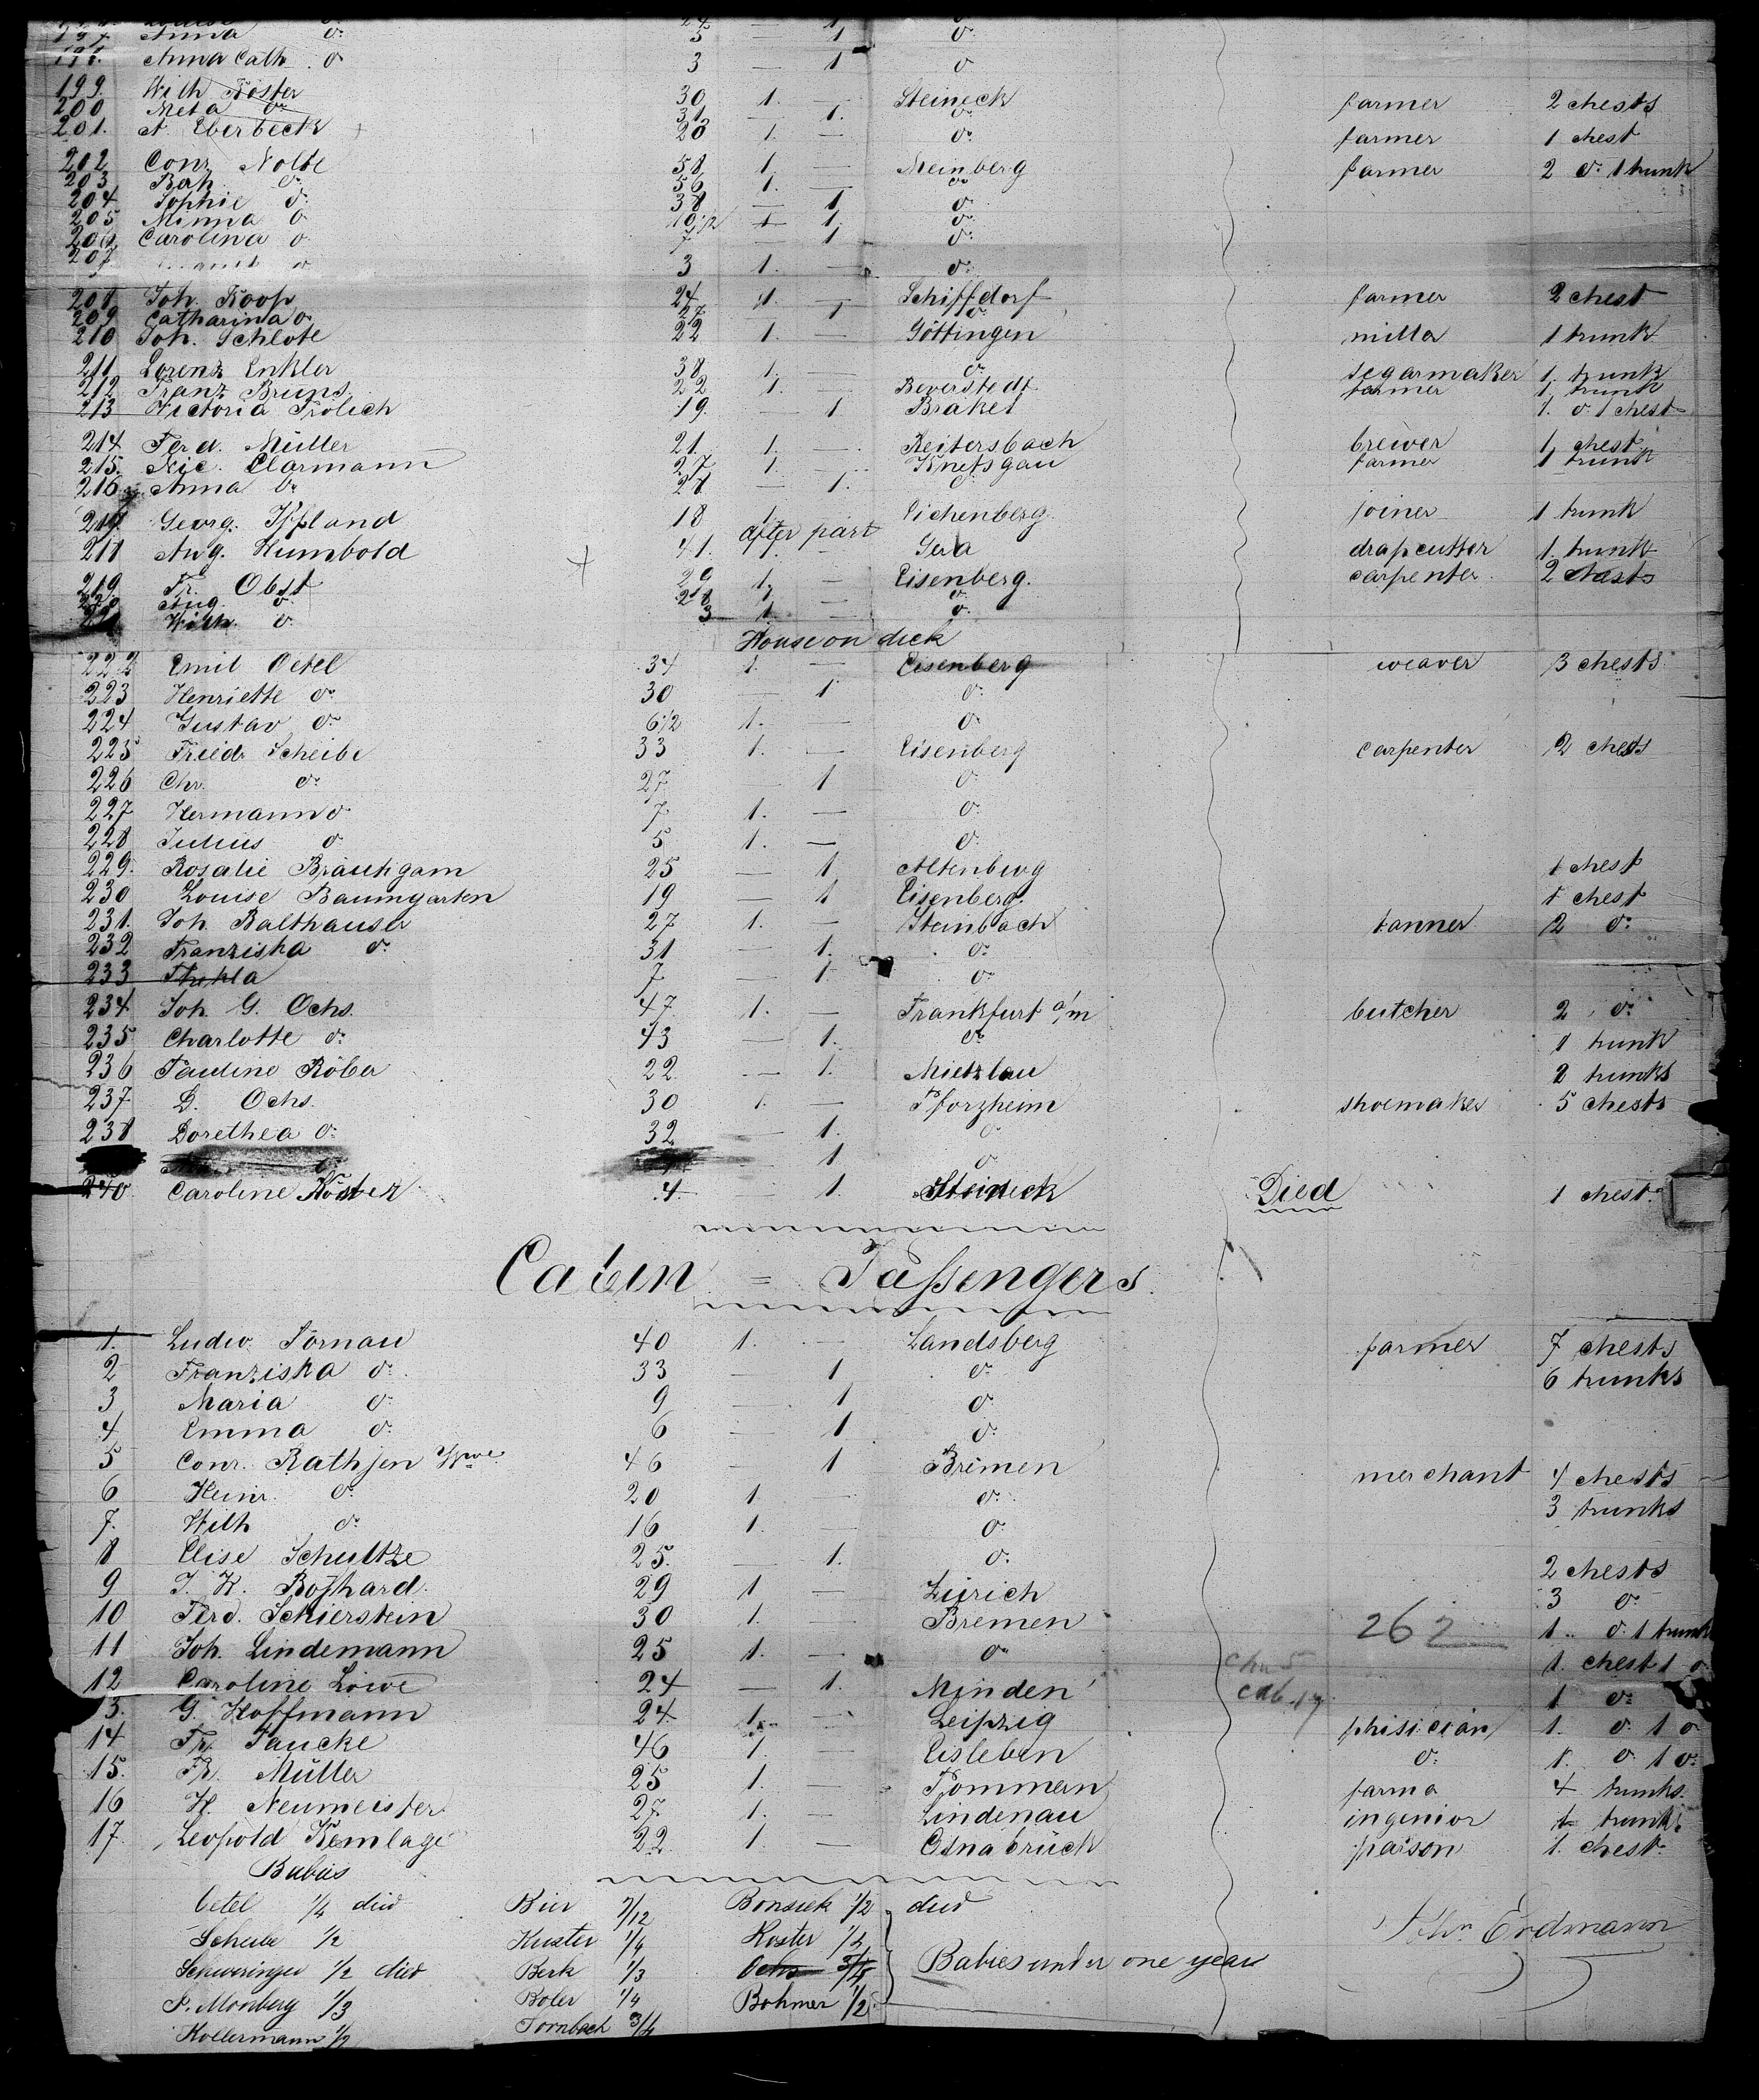 197. Anna o: 5 — 1 o:
198. Anna Cath. o 3 — 1 o
199. Wilh Köster 30 1. — Steineck farmer 2 chests
200 Meta o: 31 — 1. o:
201. A. Eberbeck 20 1. — o: farmer 1 chest
202 Conr. Nolte 58 1. — Meinberg farmer 2 o: 1 trunk
203 o: 56 1. — o:
204 Sophie o: 38 — 1 o:
205 Minna o 10 1/2 1 1. o:
206 Carolina o 7 — 1 o:
207 o 3 1. — o:
208 Joh. Koop 24 1. — Schiffdorf farmer 2 chest
209 Catharina o: 27 1 o:
210 Joh. Schlote 22 1. — Göttingen miller 1 trunk
211 Lorenz Enkler 38 1. — o: segarmaker 1. trunk
212 Franz Bruns 22 1. — Beverstedt farmer 1 trunk
213 Victoria Frölich 19. — 1 Brakel 1. o: 1 chest
214. Ferd. Müller 21. 1. — Reitersbach brewer 1 chest
215. Nic. Clarmann 27 1. Knetsgau farmer 1 trunk
216 Anna o: 28 — 1.
217 Georg. Ifland 18 1. Eichenberg joiner 1 trunk
after part
218 Aug. Humbold 41. 1. — Gera drapcutter 1. trunk
219. Fr. Obst 29 1. — Eisenberg. carpenter 2 chests
220 Aug. o: 28 1. — o:
221 Wilh. o: 3 1. — o:
House on deck
222 Emil Oetel 34 1. — Eisenberg weaver 3 chests
223 Henriette o: 30 — 1 o:
224 Gustav o: 6 1/2 1. — o:
225 Friedr Scheibe 33 1. — Eisenberg carpenter 2 chests
226 Chr. o: 27 — 1 o:
227 Hermann o: 7 1. — o:
228 Julius o: 5 1. — o:
229. Rosalie Bräutigam 25 — 1 Altenburg 1 chest
230 Louise Baumgarten 19 — 1 Eisenberg. 1 chest
231. Joh. Balthauser 27 1. — Steinbach tanner 2 o:
232 Franziska o: 31 — 1. o:
233 Thekla 7 — 1. o:
234 Joh. G. Ochs. 47. 1. — Frankfurt a/m butcher 2 o:
235 Charlotte o: 43 — 1. o: 1 trunk
236 Pauline Röber 22. — 1. Mietzlau 2 trunks
237 D. Ochs. 30 1. — Pforzheim shoemaker 5 chests
238 Dorethea o: 32 — 1. o
o: 1 o
240. Caroline Köster 4. — 1. Steineck Died 1 chest.
Cabin = Passengers.
1. Ludw. Tornau 40 1. — Landsberg farmer 7 chests
2 Franziska o: 33 — 1 o: 6 trunks
3 Maria o: 9 — 1 o:
4 Emma o: 6 — 1 o:
5 Conr. Rathjen Wwe. 46 — 1 Bremen merchant 4 chests
6 Heinr. o: 20 1. — o: 3 trunks
7. Wilh o: 16 1. — o:
8 Elise Schultze 25. — 1. o: 2 chests
9 J. H. Boßhard. 29 1 — Zürich 3 o:
10 Ferd. Schierstein 30 1. — Bremen 262 1.. o: 1 trunk
11 Joh. Lindemann 25 1. — o: 1. chest 1 o
12 Caroline Löwe 24 — 1. Minden cab. 17 1 o:
3. G. Hoffmann 24. 1. — Leipzig phisician 1. o: 1 o
14 Fr. Jaucke 46 1. — Eisleben o: 1. o: 1 o:
15. Fr. Müller 25 1. — Pommern farmer 4 trunks.
16 H. Neumeister 27. 1. — Lindenau ingenior 1 trunk
17. Leopold Kemlage 22. 1. — Osnabrück parson 1. chest.
Babies
Oetel 1/4 died Bier 7/12 Bonseek 1/2 died
Scheibe 1/2 Kuster 1/4 Koster 1/4
Schweringer 1/2 died Berk 1/3 Ochs Babies under one year
F. Monberg 1/3 Boler 1/4 Bohmer 1/2
Kollermann 1/2 Tornbeck 3/4
Erdmann